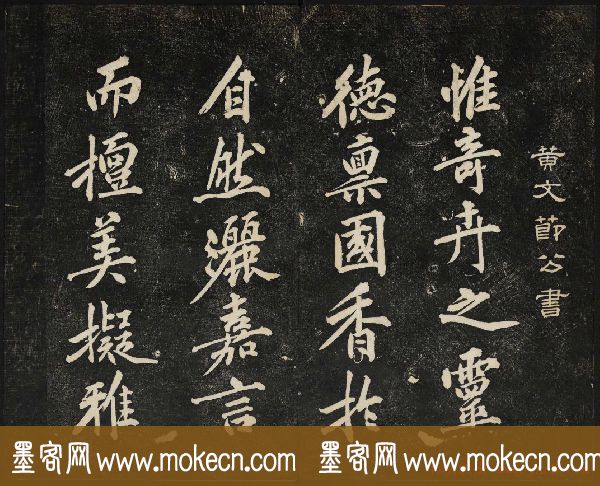 黄文節公書
惟奇卉之靈
德稟國香於
自然灑嘉言
而擅美擬雅
墨客网 www.mokecn.com 墨客网 www.mokecn.com